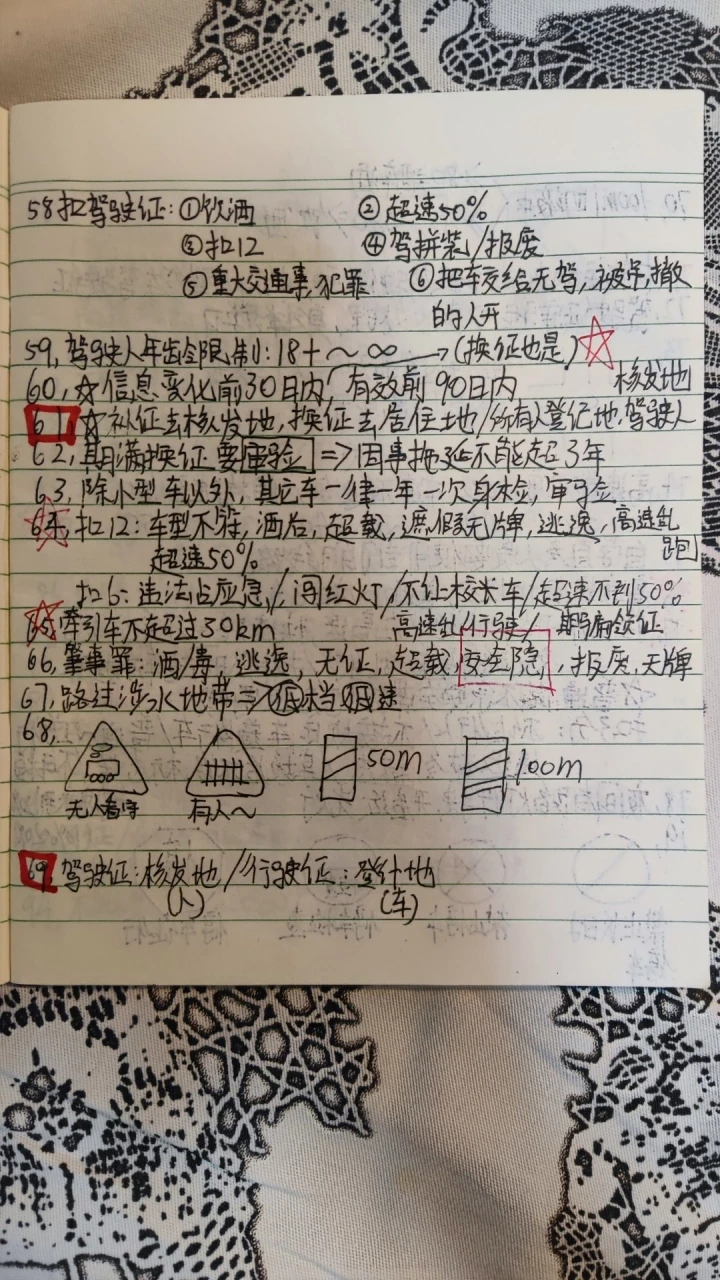 58 扣驾驶证: ①饮酒 ② 超速50%
③扣12 ④ 驾拼装/报废
⑤重大交通事犯罪 ⑥把车交给无驾,被吊,撤
的人开
59, 驾驶人年龄限制: 18+ ~ ∞ → (换证也是) ☆
60, ☆信息变化前30日内, 有效前90日内 核发地
61, ☆补证去核发地,换证去居住地/所有人登记地.驾驶人
62, 期满换证要审验 => 因事拖延不能超3年
63, 除小型车以外,其它车一律一年一次身检,审验
64, 扣12: 车型不符, 酒后, 超载, 遮假无牌, 逃逸, 高速乱
跑
超速50%
扣6: 违法占应急/闯红灯/不让校长车/超速不到50%
高速乱行驶/ 期满领证
65, 牵引车不超过30km
66, 肇事罪: 酒/毒, 逃逸, 无证, 超载, 安全隐, 报废, 无牌
67, 路过涉水地带 => 低档低速
68,
50m 100m
无人看守 有人~
69, 驾驶证: 核发地/行驶证: 登记地
(人) (车)